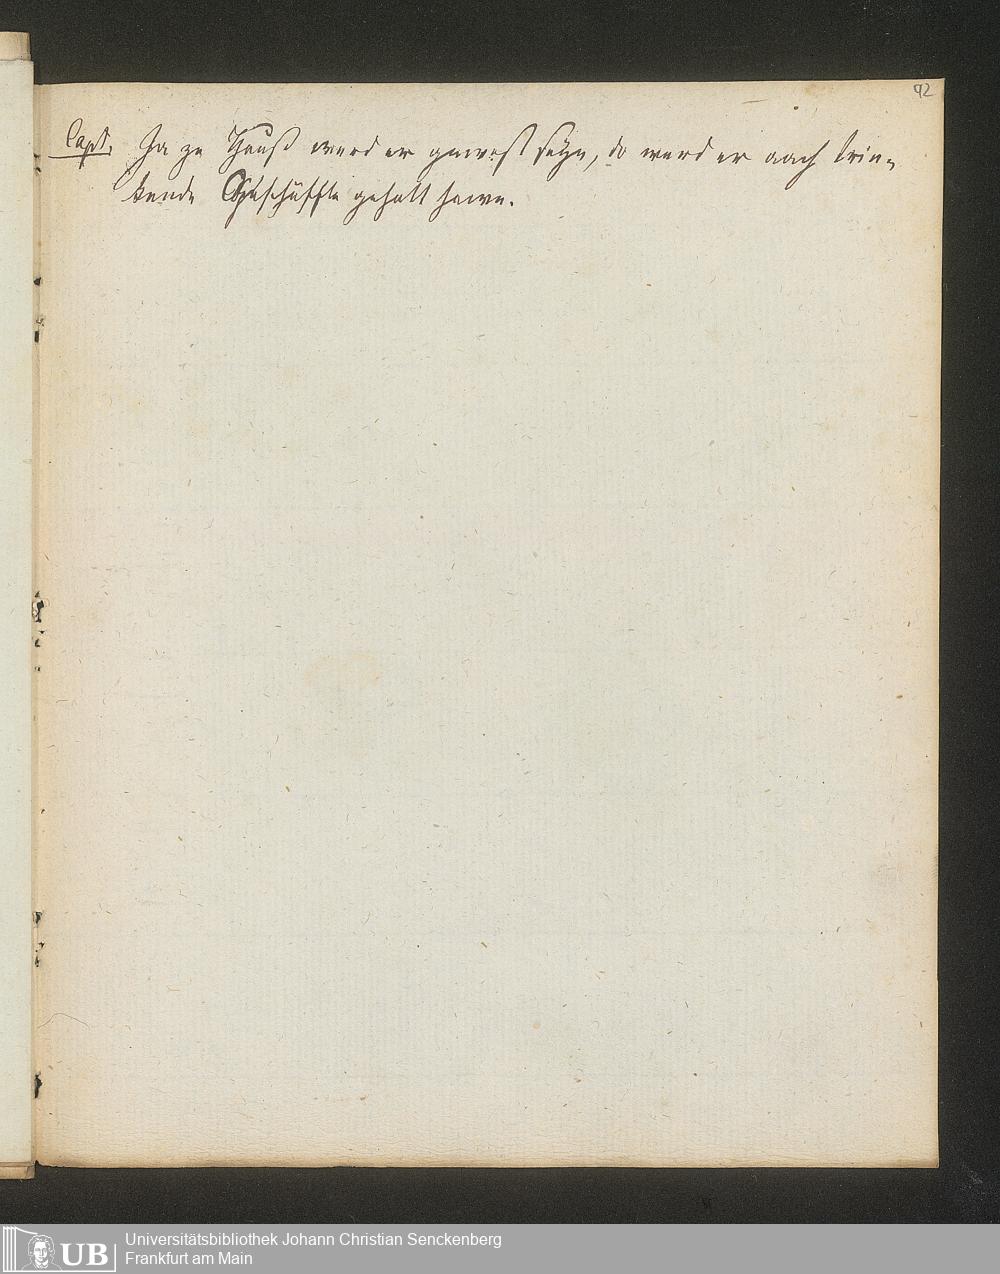 42
Capt. Ja zu Hauß werd er gewest seyn, do werd er aach drin-
kende Geschäffte gehatt hawe.
UB
Universitätsbibliothek Johann Christian Senckenberg
Frankfurt am Main